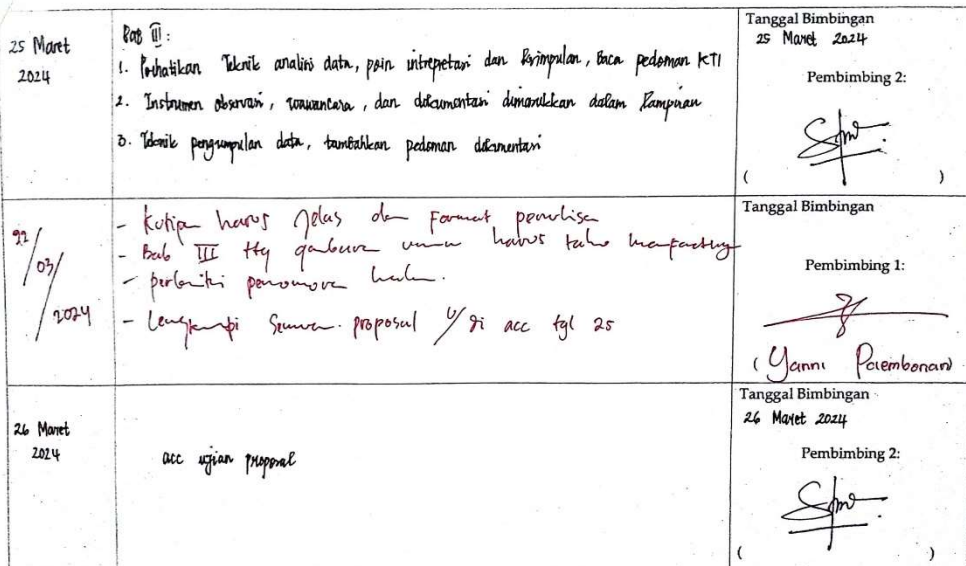 25 Maret
2024
Bab III :
1. Perhatikan Teknik analisi data, poin intrepetasi dan Kesimpulan, Baca pedoman KTI
2. Instrumen observasi, wawancara, dan dokumentasi dimasukkan dalam Lampiran
3. Teknik pengumpulan data, tambahkan pedoman dokumentasi
Tanggal Bimbingan
25 Maret 2024
Pembimbing 2:
( )
22/03/2024
- Kutipan harus Jelas dan Format penulisan
- Bab III ttg gambaran umum harus
- perbaiki penomoran halm.
- Lengkapi Semua proposal U/ di acc tgl 25
Tanggal Bimbingan
Pembimbing 1:
(Yanni Paembonan)
26 Maret
2024
acc ujian proposal
Tanggal Bimbingan
26 Maret 2024
Pembimbing 2:
( )